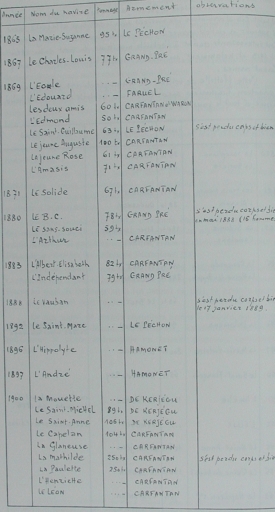 Année Nom du navire Tonnage Armement observations
1865 La Marie-Suzanne 99tx LE PECHON
1867 Le Charles-Louis 77tx GRAND-PRÉ
1869 L'Eole ..._ GRAND-PRÉ
L'Edouard ..._ FARUEL
Les deux amis 60tx CARFANTAN et WARON
L'Edmond 50tx CARFANTAN
Le Saint Guillaume 63tx LE PECHON s'est perdu corps et bien
Le jeune Auguste 100tx CARFANTAN
La jeune Rose 61tx CARFANTAN
L'Amasis 71tx CARFANTAN
1871 Le Solide 67tx CARFANTAN
1880 Le B.C. 78tx GRAND PRÉ s'est perdu corps et bie
Le sans-souci 59tx
L'Arthur ..._ CARFANTAN
1883 L'Albert Elisabeth 82tx CARFANTAN
L'Indépendant 79tx GRAND PRÉ
1888 Le Vauban ..._ s'est perdu corps et bie
le 17 janvier 1889
1892 Le Saint-Marc ..._ LE PECHON
1896 L'Hippolyte ..._ HAMONET
1897 L'André ..._ HAMONET
1900 La Mouette ..._ DE KERJEGU
Le Saint-Michel 89tx DE KERJEGU
Le Saint-Anne 106tx DE KERJEGU
Le Capelan 104tx CARFANTAN
La Glaneuse ..._ CARFANTAN
La Mathilde 250tx CARFANTAN s'est perdu corps et bie
La Paulette 250tx CARFANTAN
L'Henriette ..._ CARFANTAN
Le Léon ..._ CARFANTAN